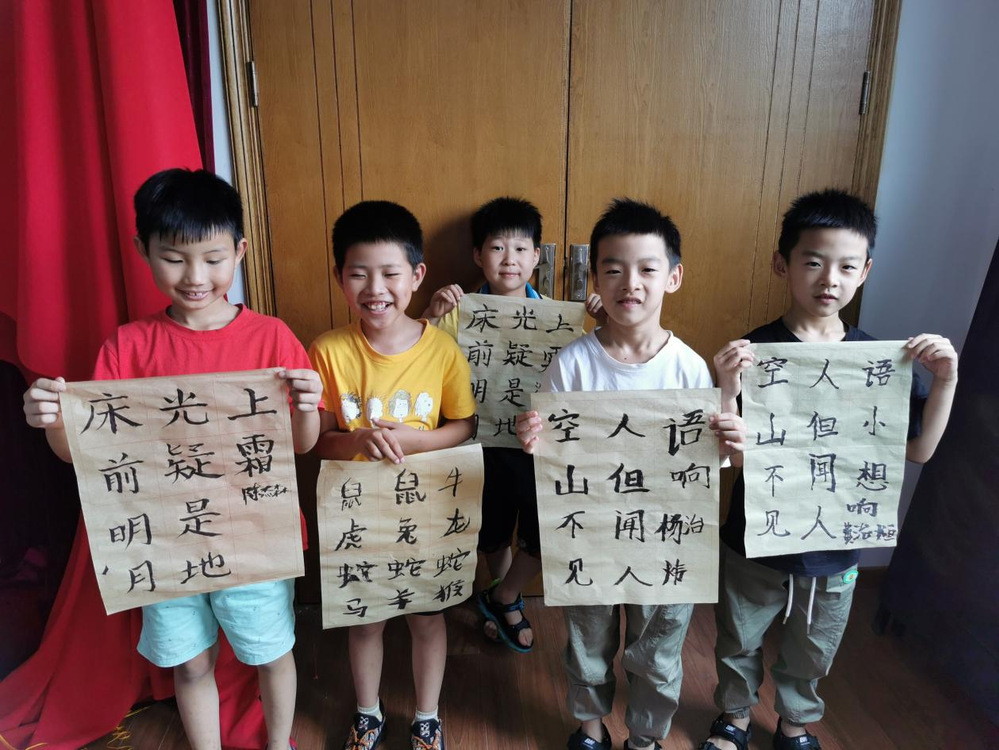 床前明月
光疑是地
上霜
鼠鼠牛
虎兔龙
蛇蛇蛇
马羊猴
床前明
光疑是地
上
空山不见
人但闻人
语响
杨治炜
空山不见
人但闻人
语小想响